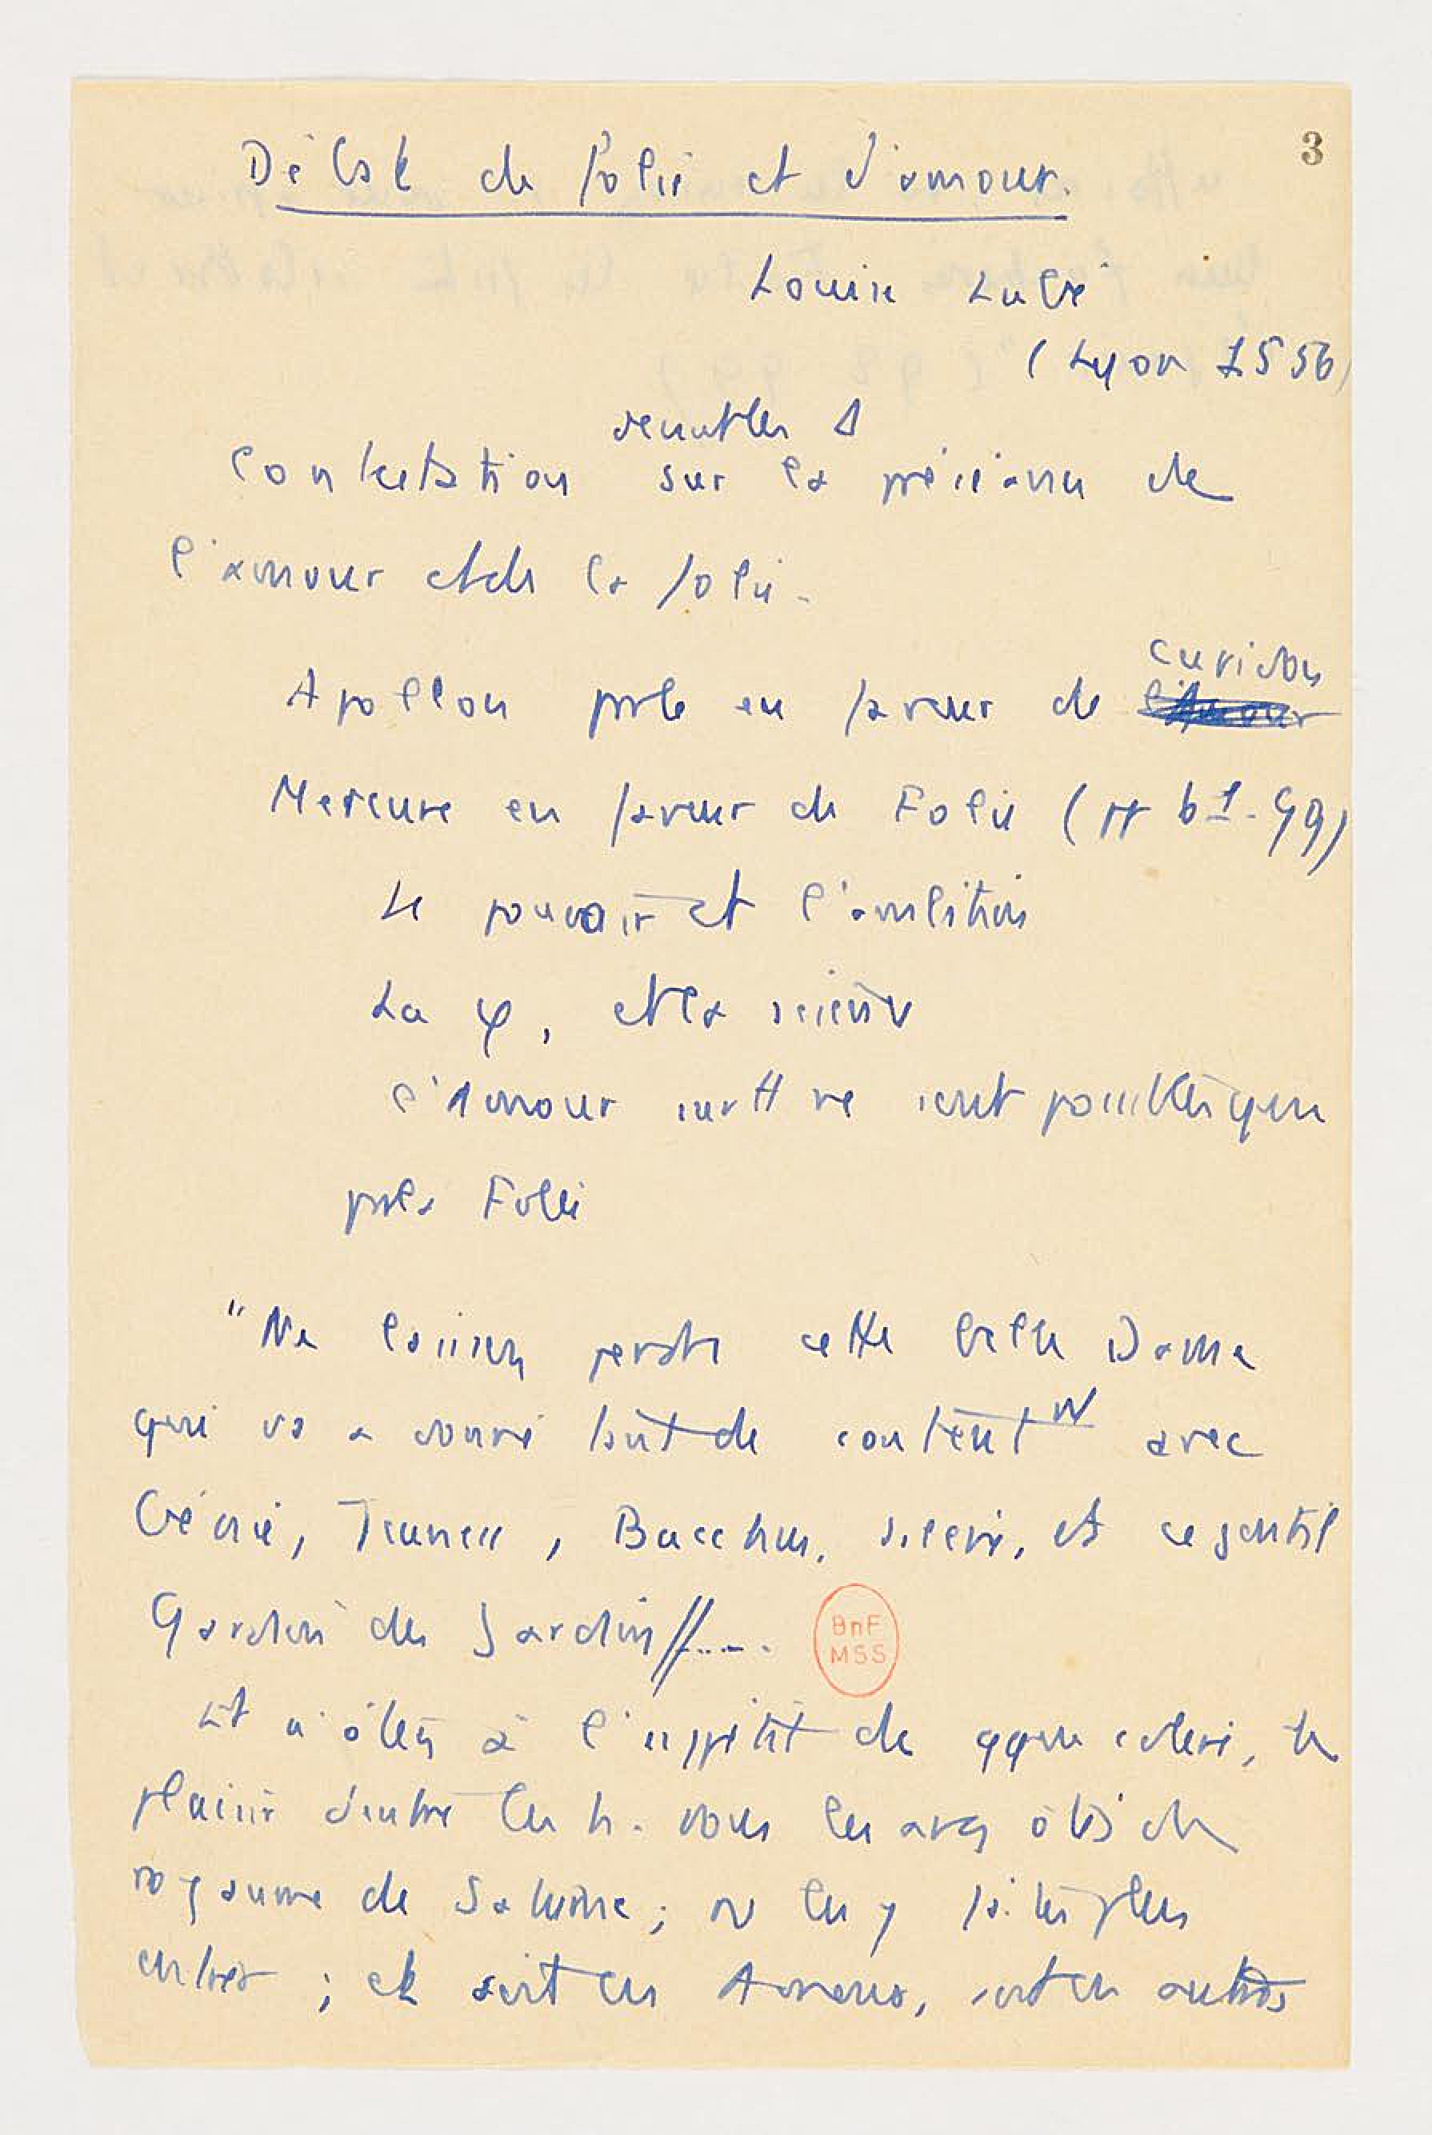 3
Débat de folie et d'amour.
Louise Labé
(Lyon 1556)
Contestation sur la préséance de
l'amour et de la folie.
Cupidon
Apollon parle en faveur de l'Amour
Mercure en faveur de Folie (pp 61-99)
Le pouvoir et l'ambition
La φ, et la science
l'Amour même ne sont possibles que
par la Folie
"Ne laissez perdre cette belle Dame
qui vs a donné tant de contentnt avec
Génie, Jeunesse, Bacchus, Silène, et ce gentil
Gardien des Jardins//....
Et n'ôtez à l'appétit de qque colère, le
plaisir d'entre les h. vous les avez ôtés du
royaume de Saturne; ne les y faites plus
entrer ; et soit en Amour, soit en autres